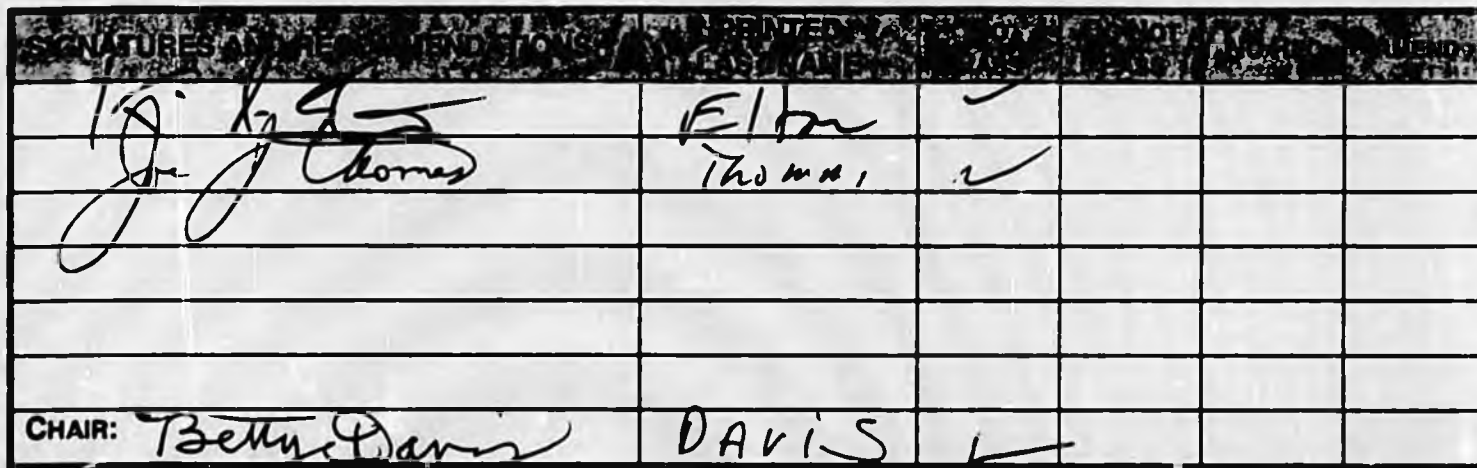 SIGNATURES AND RECOMMENDATIONS PRINTED LAST NAME DO PASS DO NOT PASS AMEND
Elton ✓
Joe J Thomas Thomas ✓
CHAIR: Bettye Davis DAVIS ✓